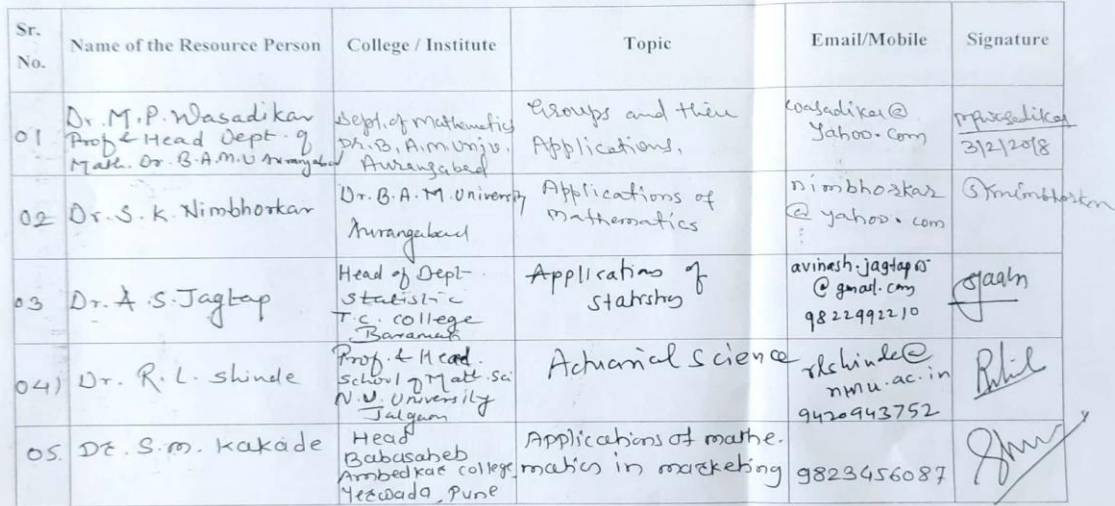 Sr. No.
Name of the Resource Person
College / Institute
Topic
Email/Mobile
Signature
01
Dr. M. P. Wasadikar
Prof & Head Dept. of
Math. Dr. B.A.M.U Aurangabad
Dept. of Mathematics
Dr. B. A.M. Univ.
Aurangabad
Groups and their
Applications.
wasadikar@
yahoo.com
mpwasadikar
3/2/2018
02
Dr. S. K. Nimbhorkar
Dr. B.A.M. University
Aurangabad
Applications of
Mathematics
nimbhorkar
@ yahoo.com
Sknimbhorkar
03
Dr. A. S. Jagtap
Head of Dept
Statistic
T.C. college
Baramati
Applications of
Statistics
avinash.jagtap05
@ gmail.com
9822992210
04)
Dr. R. L. Shinde
Prof. & Head.
School of Math. Sci
N.U. University
Jalgaon
Actuarial Science
rlshinde@
nmu.ac.in
9420943752
05.
Dr. S. M. Kakade
Head
Babasaheb
Ambedkar college,
Yerwada, Pune
Applications of mathe.
matics in marketing
9823456087